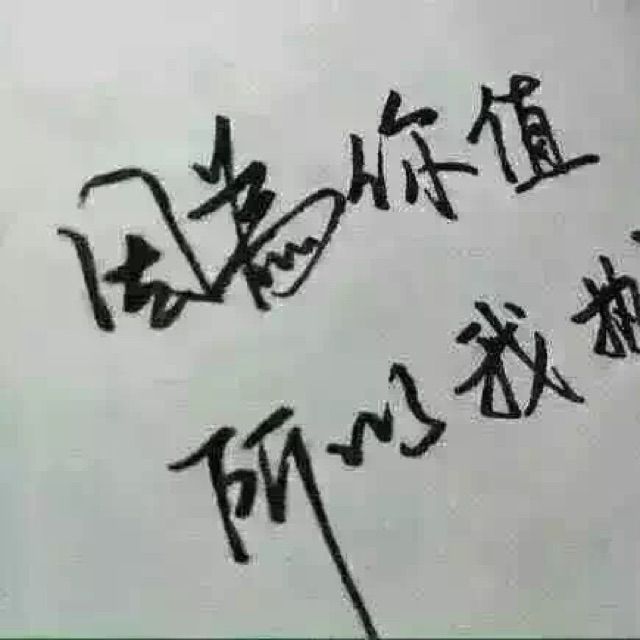 因為你值
所以我